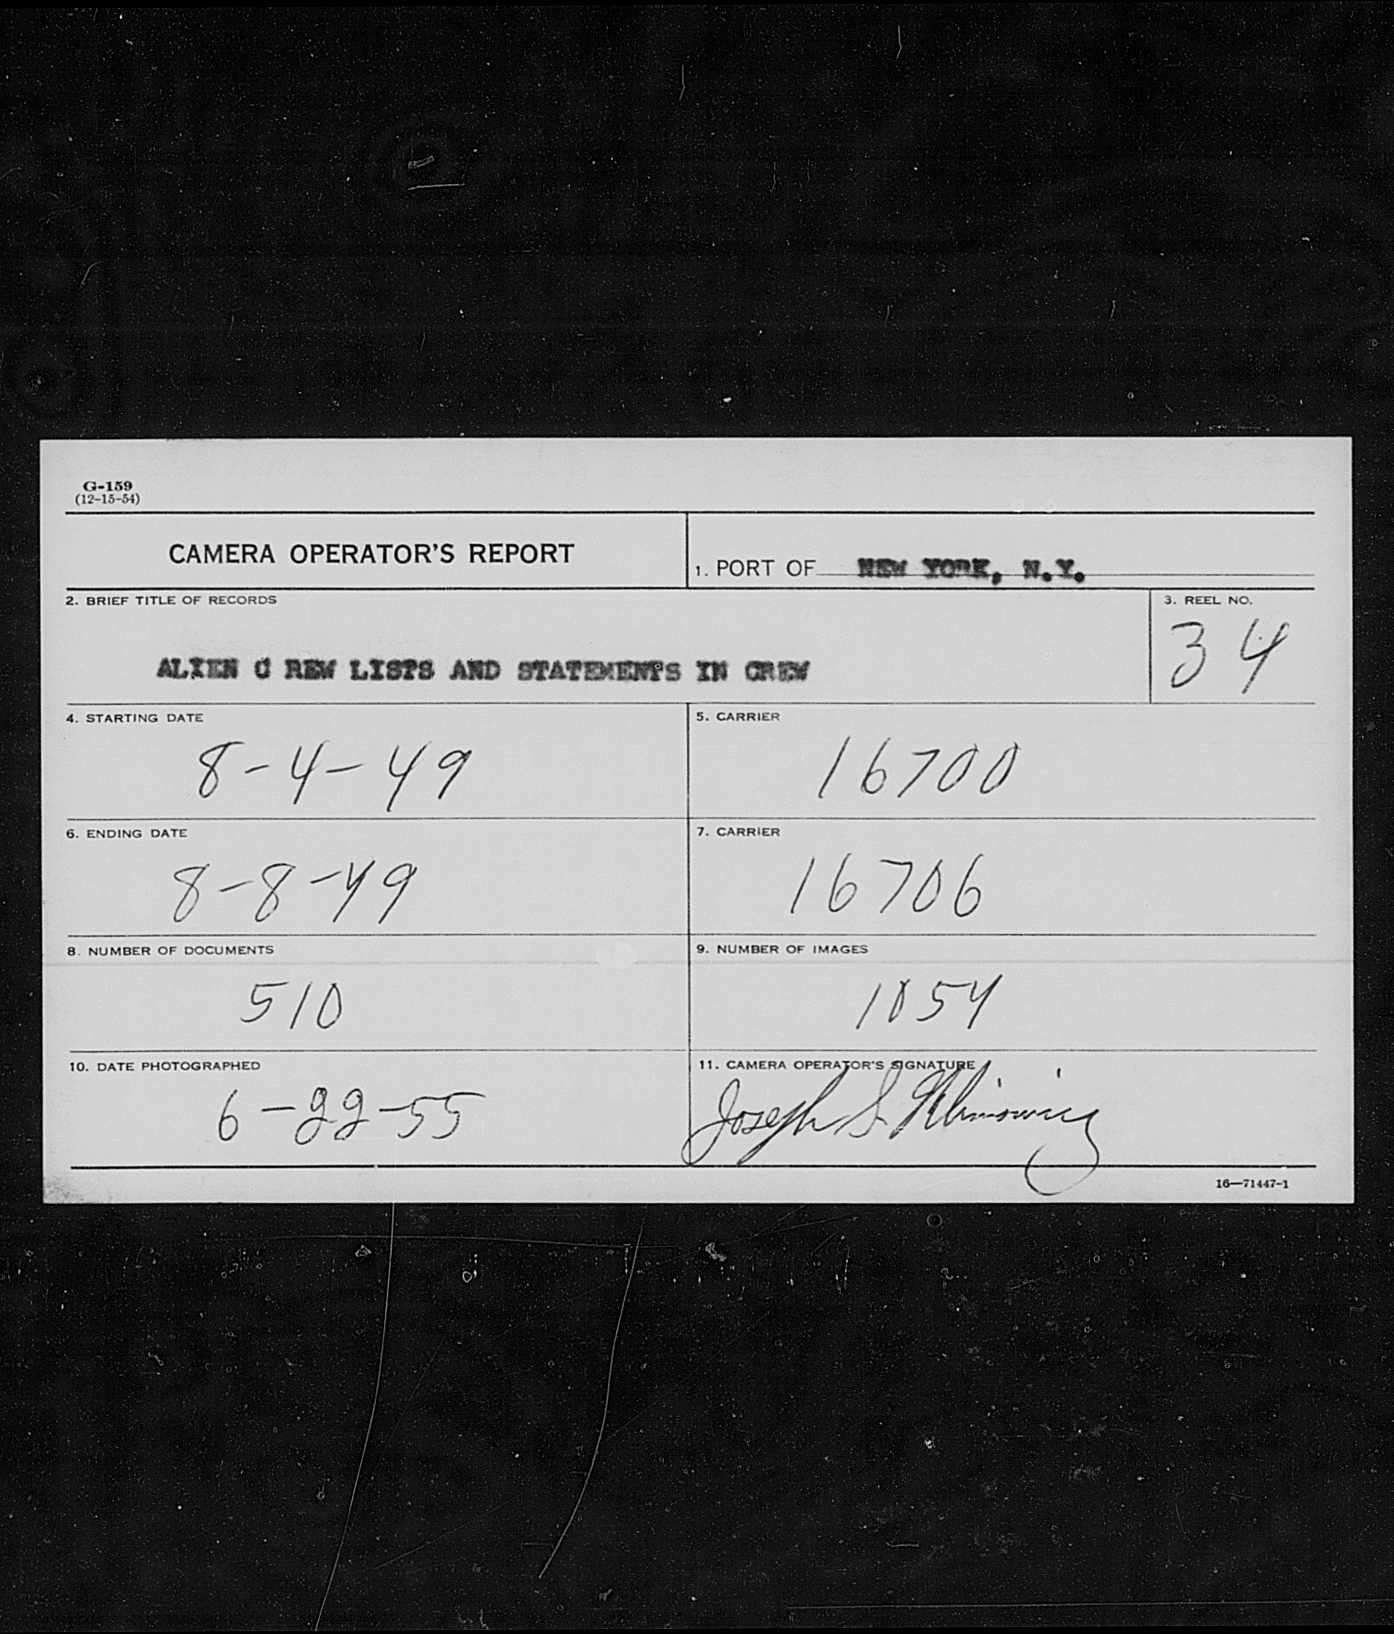 G-159
(12-15-54)
CAMERA OPERATOR'S REPORT
1. PORT OF NEW YORK, N.Y.
2. BRIEF TITLE OF RECORDS
3. REEL NO.
ALIEN C REW LISTS AND STATEMENTS IN CREW
34
4. STARTING DATE
5. CARRIER
8-4-49
16700
6. ENDING DATE
7. CARRIER
8-8-49
16706
8. NUMBER OF DOCUMENTS
9. NUMBER OF IMAGES
510
1054
10. DATE PHOTOGRAPHED
11. CAMERA OPERATOR'S SIGNATURE
6-22-55
Joseph S. Klimowicz
16—71447-1